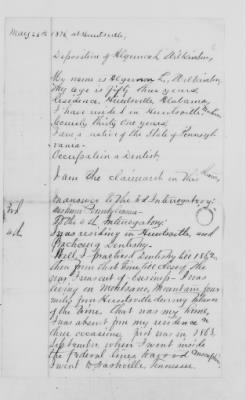 May 26th 1876 at Huntsville,
Deposition of Algernon L. Wilkinson,
My name is Algernon L. Wilkinson
My age is fifty three years
Residence Huntsville Alabama,
I have resided in Huntsville, when
Security thirty one years,
I am a native of the State of Pennsyl
vania.
Occupation a Dentist.
I am the claimant in this
3rd In answer to the 3d Interrogatory:
4th To the 4th Interrogatory:
I was residing in Huntsville, and
Practicing Dentistry.
Well I practiced Dentistry till 1862
then from that time till along the
year I went out of business. I was
living on Montsano, Mountain four
mile from Huntsville during balance
of the time. That was my home,
I was absent from my residence on
three occasions, first was in 1863
September when I went inside
the Federal lines
I went to Nashville Tennessee.